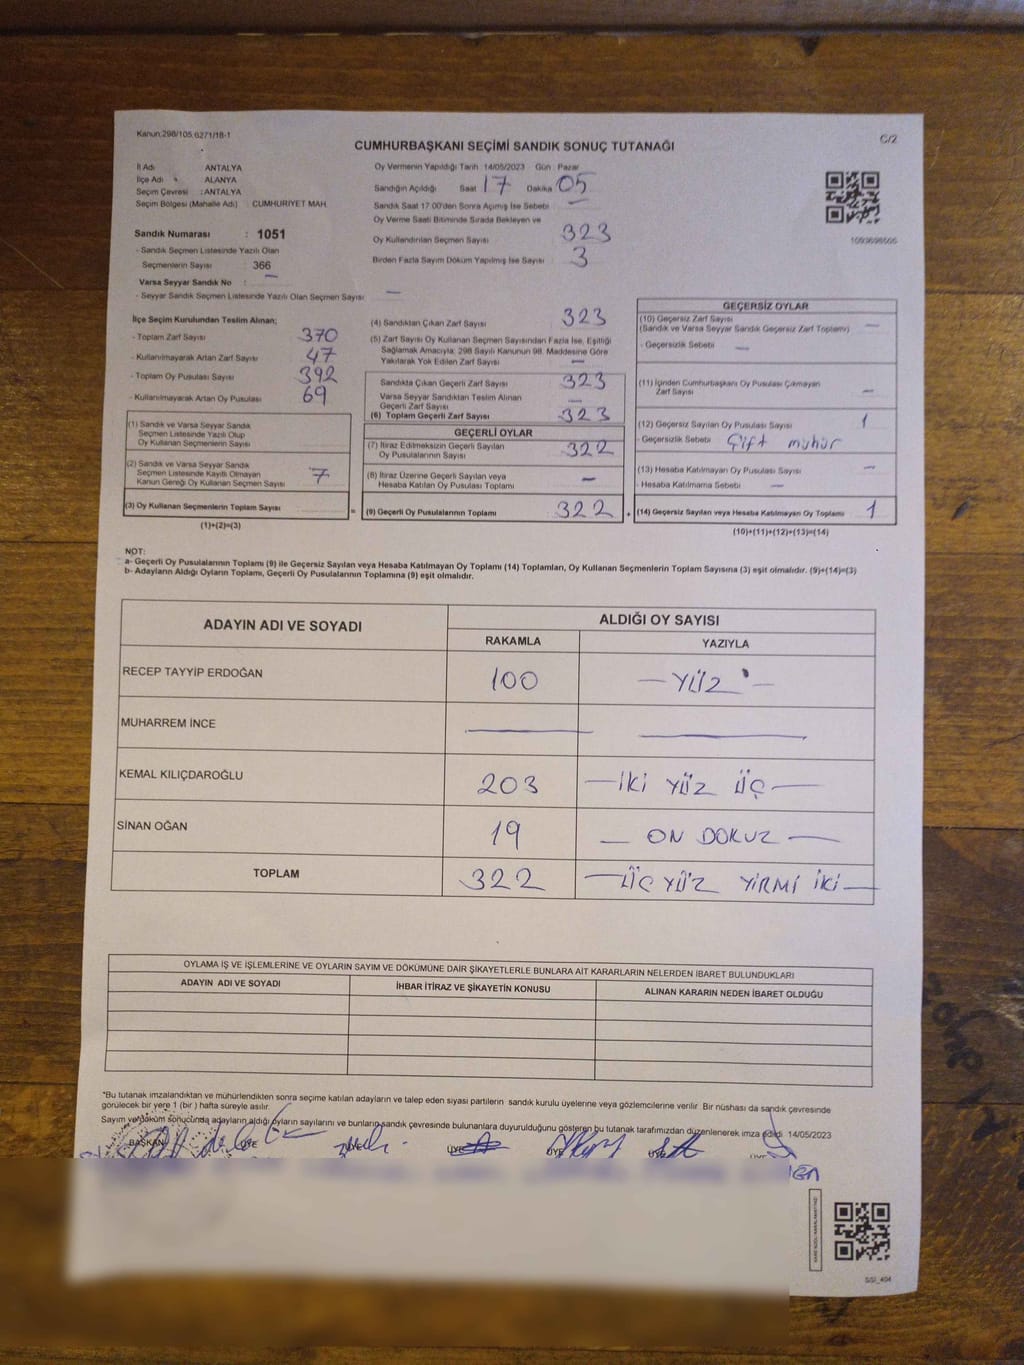 Kanun:298/105,6271/18-1
C/2
CUMHURBAŞKANI SEÇİMİ SANDIK SONUÇ TUTANAĞI
İl Adı : ANTALYA
İlçe Adı : ALANYA
Seçim Çevresi : ANTALYA
Seçim Bölgesi (Mahalle Adı) : CUMHURİYET MAH.
Sandık Numarası : 1051
- Sandık Seçmen Listesinde Yazılı Olan
Seçmenlerin Sayısı : 366
Varsa Seyyar Sandık No : —
- Seyyar Sandık Seçmen Listesinde Yazılı Olan Seçmen Sayısı : —
Oy Vermenin Yapıldığı Tarih 14/05/2023 Gün : Pazar
Sandığın Açıldığı Saat 17 Dakika 05
Sandık Saat 17.00'den Sonra Açımış İse Sebebi : —
Oy Verme Saati Bitiminde Sırada Bekleyen ve
Oy Kullandırılan Seçmen Sayısı 323
Birden Fazla Sayım Döküm Yapılmış İse Sayısı : 3
İlçe Seçim Kurulundan Teslim Alınan;
- Toplam Zarf Sayısı 370
- Kullanılmayarak Artan Zarf Sayısı 47
- Toplam Oy Pusulası Sayısı 392
- Kullanılmayarak Artan Oy Pusulası 69
(1) Sandık ve Varsa Seyyar Sandık
Seçmen Listesinde Yazılı Olup
Oy Kullanan Seçmenlerin Sayısı
(2) Sandık ve Varsa Seyyar Sandık
Seçmen Listesinde Kayıtlı Olmayan
Kanun Gereği Oy Kullanan Seçmen Sayısı 7
(3) Oy Kullanan Seçmenlerin Toplam Sayısı =
(1)+(2)=(3)
(4) Sandıktan Çıkan Zarf Sayısı 323
(5) Zarf Sayısı Oy Kullanan Seçmen Sayısından Fazla İse, Eşitliği
Sağlamak Amacıyla; 298 Sayılı Kanunun 98. Maddesine Göre
Yakılarak Yok Edilen Zarf Sayısı —
Sandıkta Çıkan Geçerli Zarf Sayısı 323
Varsa Seyyar Sandıktan Teslim Alınan
Geçerli Zarf Sayısı —
(6) Toplam Geçerli Zarf Sayısı 323
GEÇERLİ OYLAR
(7) İtiraz Edilmeksizin Geçerli Sayılan
Oy Pusulalarının Sayısı 322
(8) İtiraz Üzerine Geçerli Sayılan veya
Hesaba Katılan Oy Pusulası Toplamı —
(9) Geçerli Oy Pusulalarının Toplamı 322 +
1093698505
GEÇERSİZ OYLAR
(10) Geçersiz Zarf Sayısı
(Sandık ve Varsa Seyyar Sandık Geçersiz Zarf Toplamı) —
- Geçersizlik Sebebi : —
(11) İçinden Cumhurbaşkanı Oy Pusulası Çıkmayan
Zarf Sayısı —
(12) Geçersiz Sayılan Oy Pusulası Sayısı 1
- Geçersizlik Sebebi : Çift mühür
(13) Hesaba Katılmayan Oy Pusulası Sayısı —
- Hesaba Katılmama Sebebi : —
(14) Geçersiz Sayılan veya Hesaba Katılmayan Oy Toplamı 1
(10)+(11)+(12)+(13)=(14)
NOT:
a- Geçerli Oy Pusulalarının Toplamı (9) ile Geçersiz Sayılan veya Hesaba Katılmayan Oy Toplamı (14) Toplamları, Oy Kullanan Seçmenlerin Toplam Sayısına (3) eşit olmalıdır. (9)+(14)=(3)
b- Adayların Aldığı Oyların Toplamı, Geçerli Oy Pusulalarının Toplamına (9) eşit olmalıdır.
ADAYIN ADI VE SOYADI ALDIĞI OY SAYISI
RAKAMLA YAZIYLA
RECEP TAYYİP ERDOĞAN 100 — YÜZ —
MUHARREM İNCE — —
KEMAL KILIÇDAROĞLU 203 — İKİ YÜZ ÜÇ —
SİNAN OĞAN 19 — ON DOKUZ —
TOPLAM 322 — ÜÇ YÜZ YİRMİ İKİ —
OYLAMA İŞ VE İŞLEMLERİNE VE OYLARIN SAYIM VE DÖKÜMÜNE DAİR ŞİKAYETLERLE BUNLARA AİT KARARLARIN NELERDEN İBARET BULUNDUKLARI
ADAYIN ADI VE SOYADI İHBAR İTİRAZ VE ŞİKAYETİN KONUSU ALINAN KARARIN NEDEN İBARET OLDUĞU
*Bu tutanak imzalandıktan ve mühürlendikten sonra seçime katılan adayların ve talep eden siyasi partilerin sandık kurulu üyelerine veya gözlemcilerine verilir. Bir nüshası da sandık çevresinde
görülecek bir yere 1 (bir ) hafta süreyle asılır.
Sayım ve döküm sonucunda adayların aldığı oyların sayılarını ve bunların sandık çevresinde bulunanlara duyurulduğunu gösteren bu tutanak tarafımızdan düzenlenerek imza edildi. 14/05/2023
BAŞKAN ÜYE ÜYE ÜYE ÜYE
SSİ_404